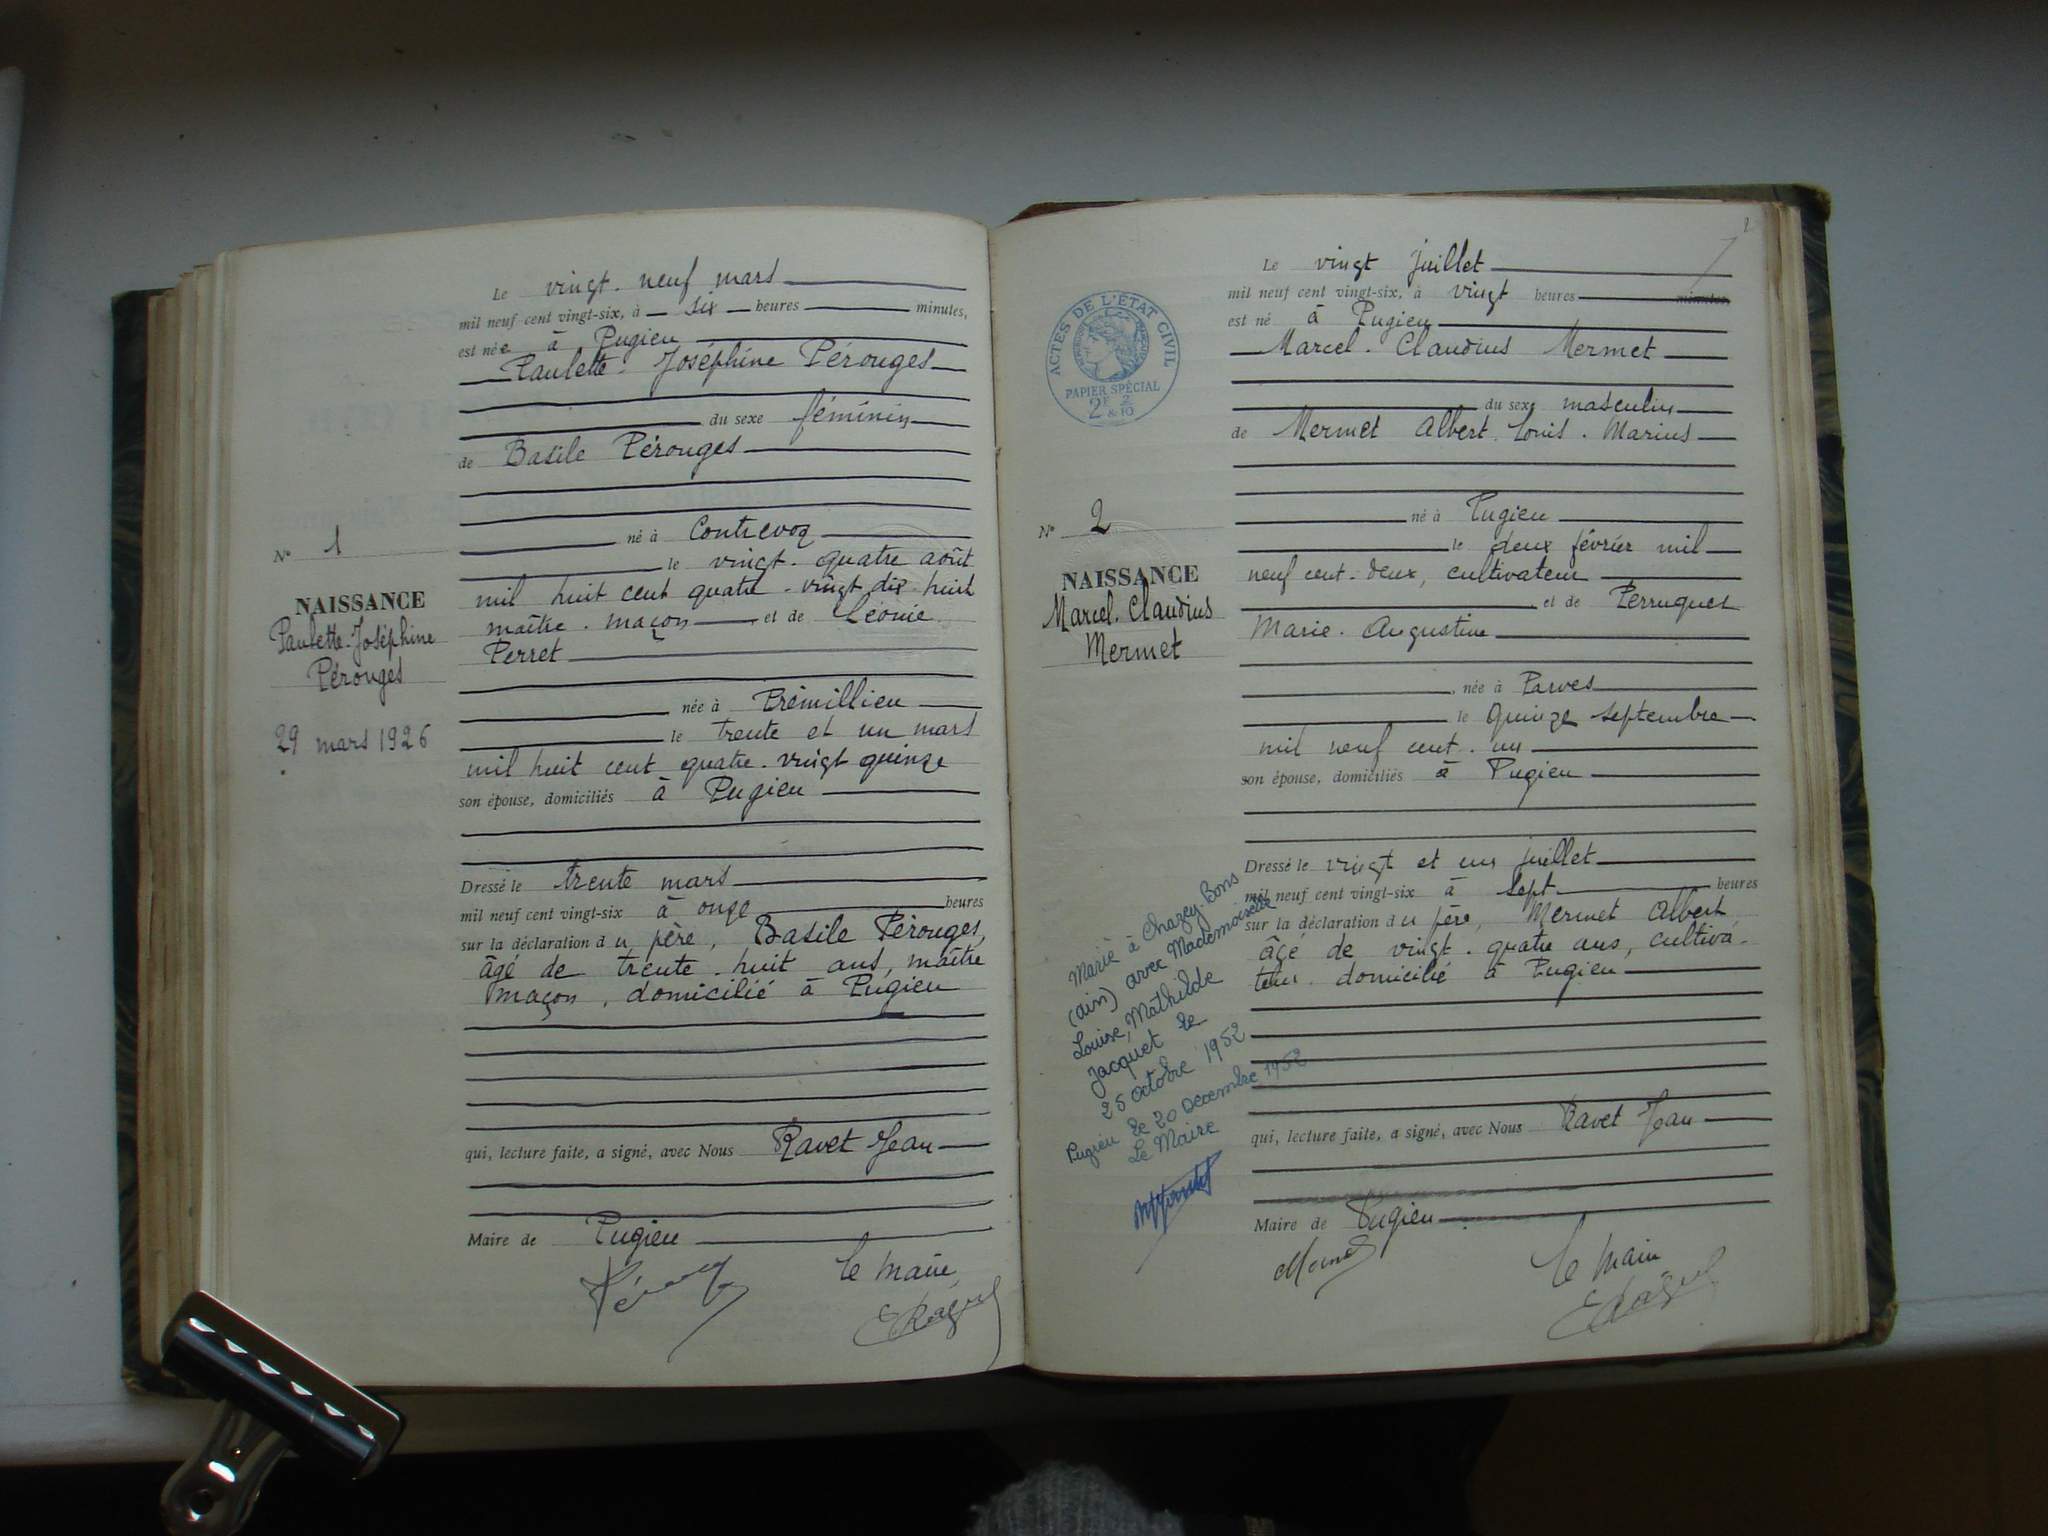 Le vingt-neuf mars
mil neuf cent vingt-six, à six heures minutes,
est née à Pugieu
Paulette-Joséphine Pérouges
du sexe féminin
de Basile Pérouges
né à Contrevoz
le vingt-quatre août
mil huit cent quatre-vingt dix-huit
maître-maçon et de Léonie
Perret
née à Prémillieu
le trente et un mars
mil huit cent quatre-vingt quinze
son épouse, domiciliés à Pugieu
Dressé le trente mars
mil neuf cent vingt-six à onze heures
sur la déclaration du père, Basile Pérouges,
âgé de trente-huit ans, maître
maçon, domicilié à Pugieu
qui, lecture faite, a signé, avec Nous Ravet Jean
Maire de Pugieu
le maire,
N° 1
NAISSANCE
Paulette-Joséphine
Pérouges
29 mars 1926
2
Le vingt juillet
mil neuf cent vingt-six, à vingt heures minutes,
est né à Pugieu
Marcel-Claudius Mermet
du sexe masculin
de Mermet Albert-Louis-Marius
né à Pugieu
le deux février mil
neuf cent-deux, cultivateur
et de Perruquet
Marie-Augustine
née à Parves
le quinze septembre
mil neuf cent-un
son épouse, domiciliés à Pugieu
Dressé le vingt et un juillet
mil neuf cent vingt-six à sept heures
sur la déclaration du père, Mermet Albert
âgé de vingt-quatre ans, cultiva-
teur domicilié à Pugieu
qui, lecture faite, a signé, avec Nous Ravet Jean
Maire de Pugieu
le maire
ACTES DE L'ÉTAT CIVIL
PAPIER SPÉCIAL
2F & 2/10
N° 2
NAISSANCE
Marcel-Claudius
Mermet
Marié à Chazey-Bons
(ain) avec Mademoiselle
Louise, Mathilde
Jacquet le
25 octobre 1952
Pugieu le 20 Décembre 1952
Le Maire